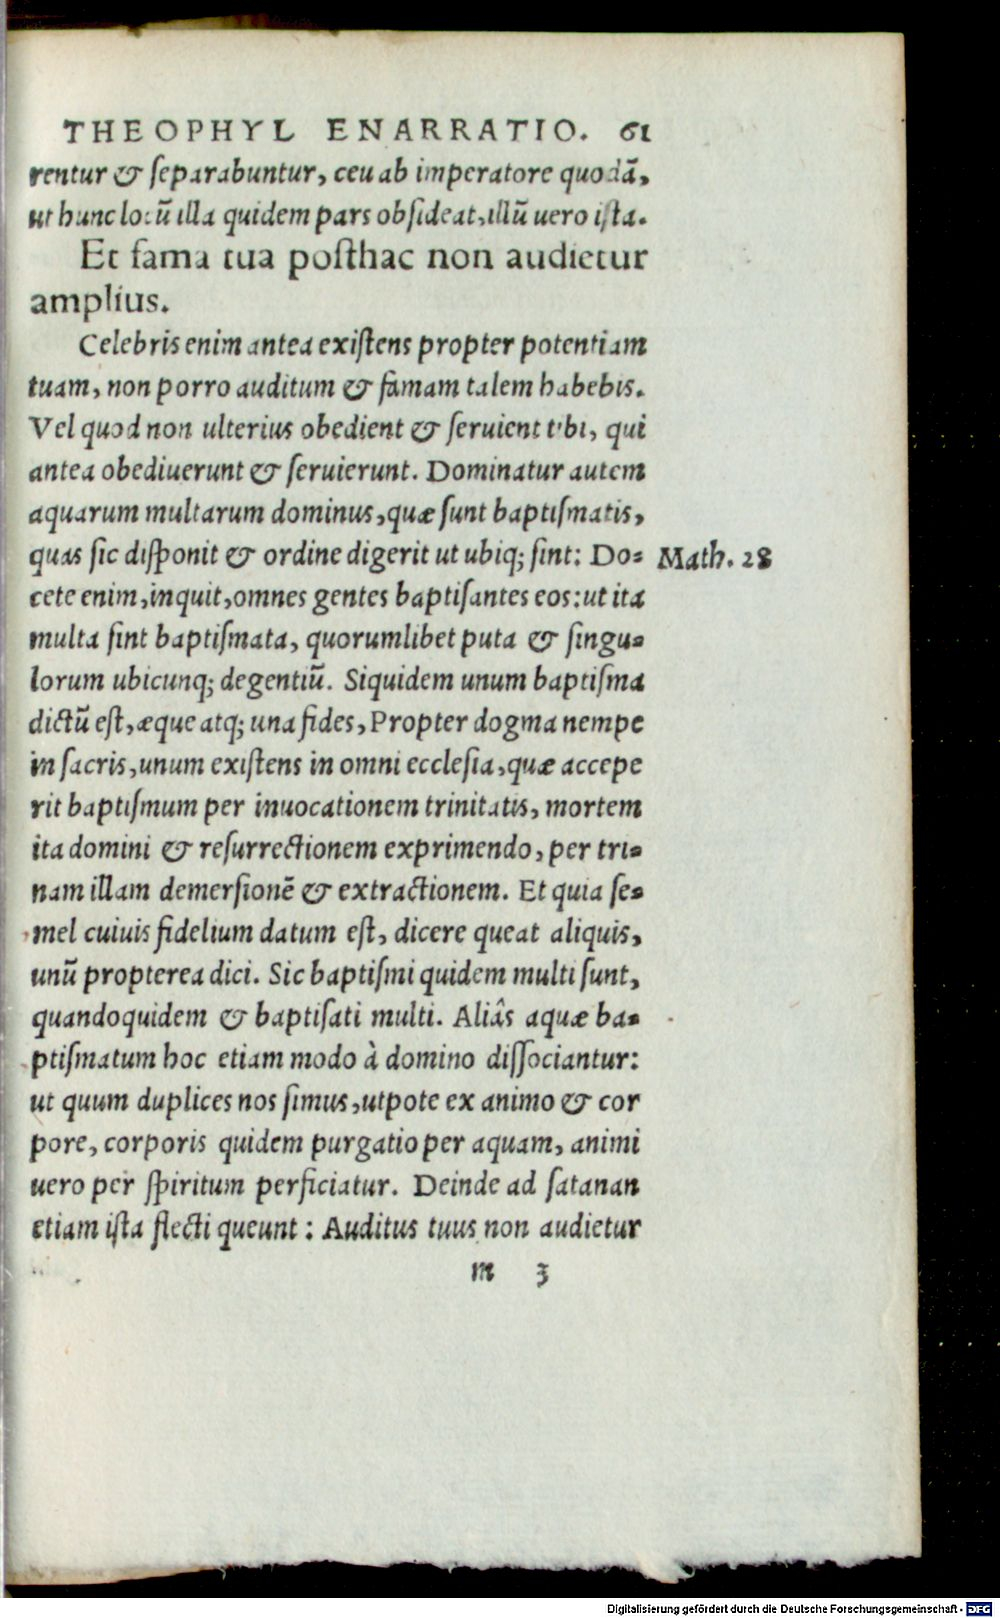 THEOPHYL ENARRATIO. 61
rentur & ſeparabuntur, ceu ab imperatore quodā,
ut hunc locū illa quidem pars obſideat, illū uero iſta.
Et fama tua poſthac non audietur
amplius.
Celebris enim antea exiſtens propter potentiam
tuam, non porro auditum & famam talem habebis.
Vel quod non ulterius obedient & ſeruient tibi, qui
antea obediuerunt & ſeruierunt. Dominatur autem
aquarum multarum dominus, quæ ſunt baptiſmatis,
quas ſic diſponit & ordine digerit ut ubiq; ſint: Do⸗
Math. 28
cete enim, inquit, omnes gentes baptiſantes eos: ut ita
multa ſint baptiſmata, quorumlibet puta & ſingu⸗
lorum ubicunq; degentiū. Siquidem unum baptiſma
dictū eſt, æque atq; una fides, Propter dogma nempe
in ſacris, unum exiſtens in omni eccleſia, quæ accepe
rit baptiſmum per inuocationem trinitatis, mortem
ita domini & reſurrectionem exprimendo, per tri⸗
nam illam demerſionē & extractionem. Et quia ſe⸗
mel cuiuis fidelium datum eſt, dicere queat aliquis,
unū propterea dici. Sic baptiſmi quidem multi ſunt,
quandoquidem & baptiſati multi. Aliâs aquæ ba⸗
ptiſmatum hoc etiam modo à domino diſſociantur:
ut quum duplices nos ſimus, utpote ex animo & cor
pore, corporis quidem purgatio per aquam, animi
uero per ſpiritum perficiatur. Deinde ad ſatanan
etiam iſta flecti queunt: Auditus tuus non audietur
m 3
Digitalisierung gefördert durch die Deutsche Forschungsgemeinschaft - DFG